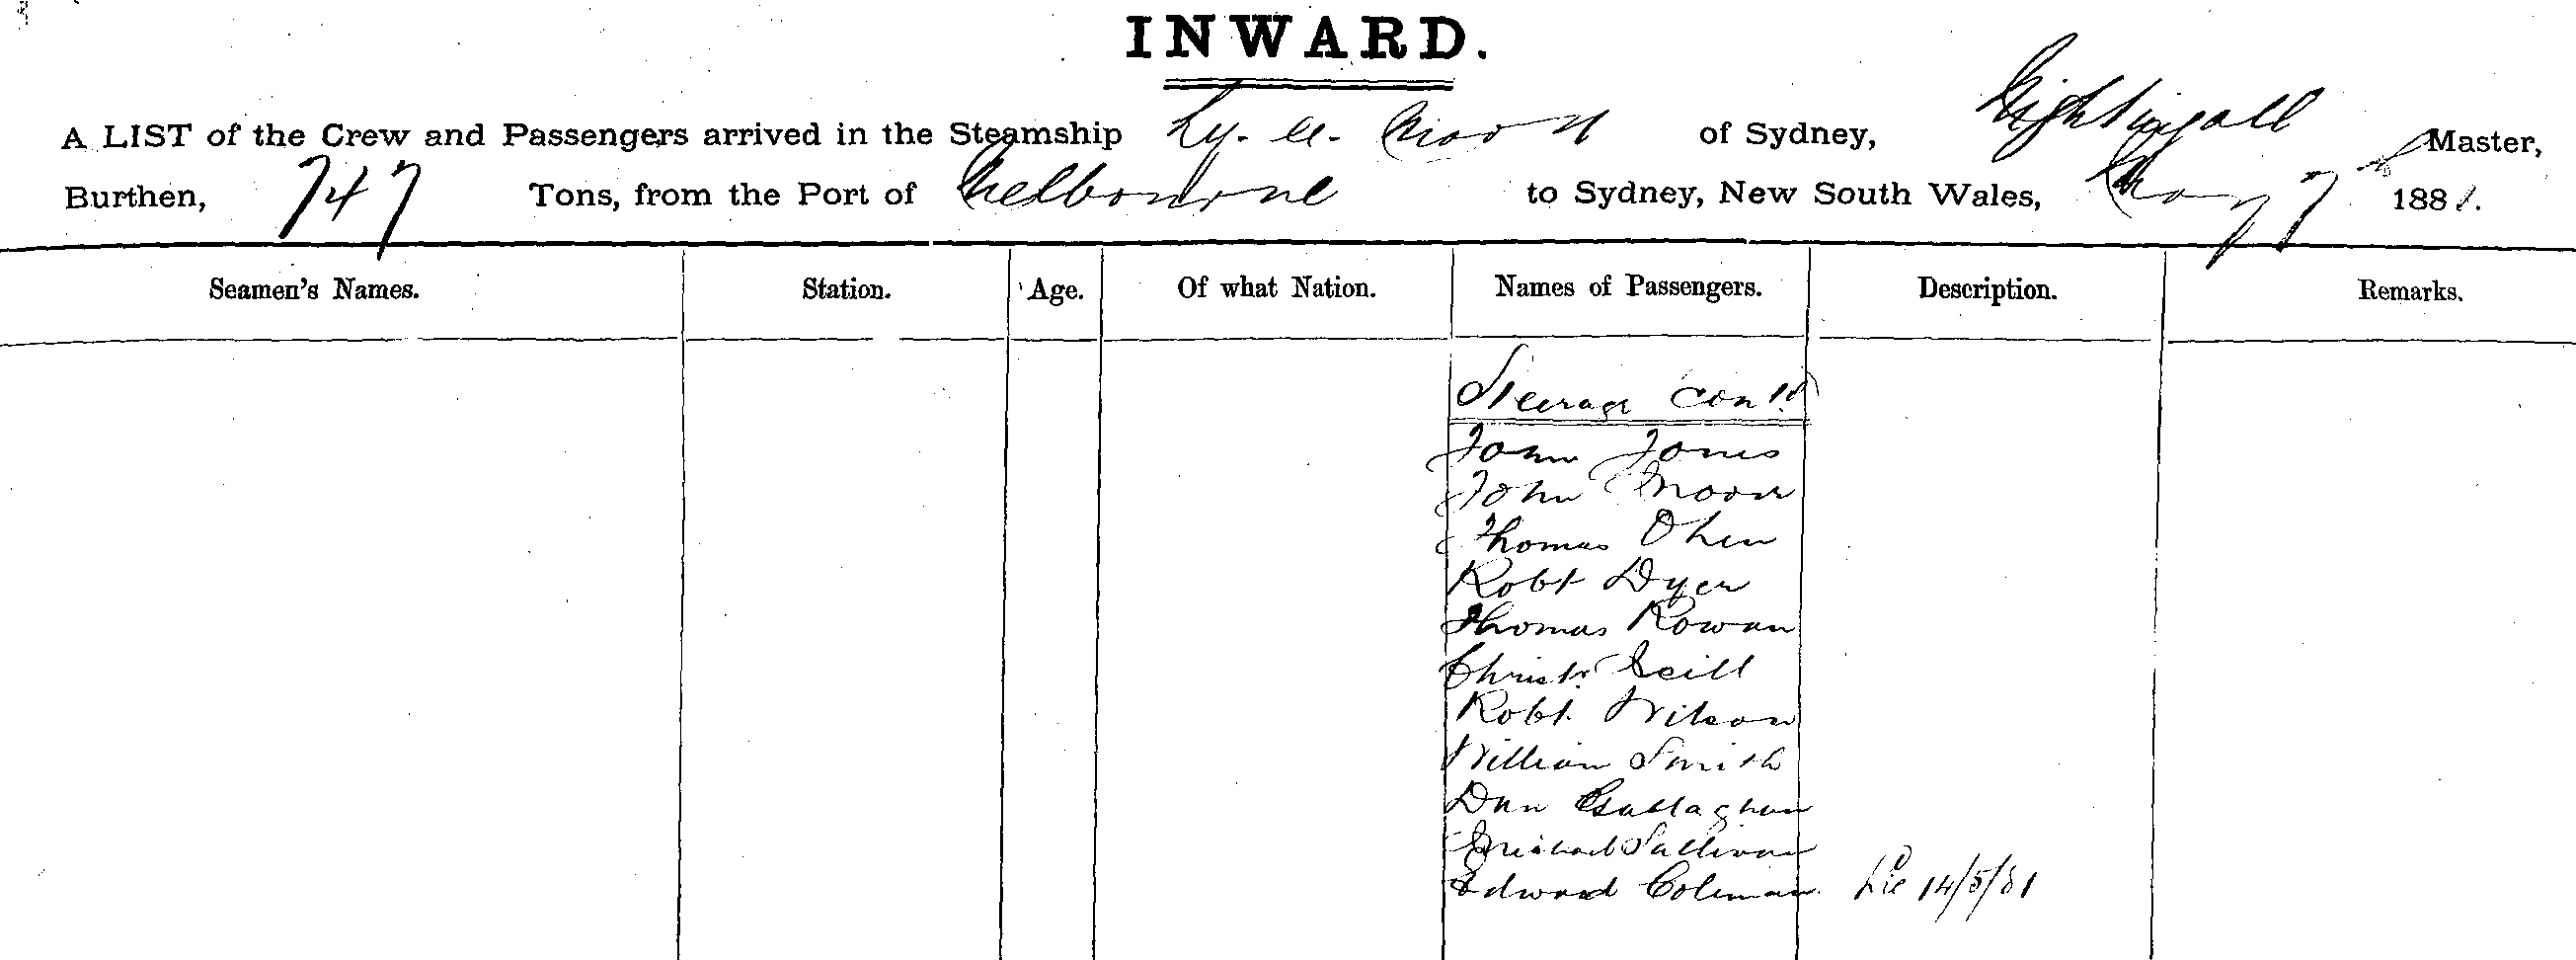 INWARD.
A LIST of the Crew and Passengers arrived in the Steamship Ly.ee.Moon of Sydney, Nightingall Master,
Burthen, 747 Tons, from the Port of Melbourne to Sydney, New South Wales, May 7th 1881.
Seamen's Names. Station. Age. Of what Nation. Names of Passengers. Description. Remarks.
Steerage contd
John Jones
John Moore
Thomas Ohen
Robt Dyer
Thomas Rowan
Christr
Robt. Wilson
William Smith
Dan Gallagher
Michael Sullivan
Edward Coleman 14/5/81